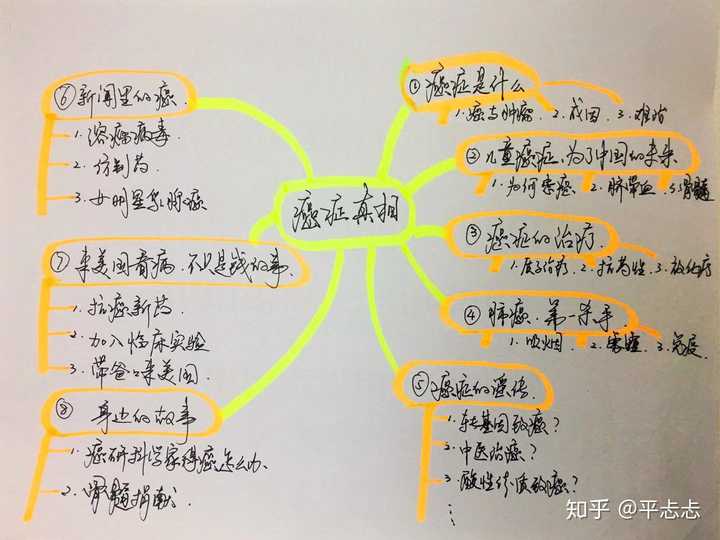 癌症真相
① 癌症是什么
1. 癌与肿瘤 2. 成因 3. 难治
② 儿童癌症.为了中国的未来
1. 为何患癌 2. 脐带血 3. 骨髓
③ 癌症的治疗.
1. 质子治疗. 2. 抗药性. 3. 放化疗
④ 肺癌.第一杀手
1. 吸烟. 2. 雾霾. 3. 免疫
⑤ 癌症的谣传.
1. 转基因致癌?
2. 中医治癌?
3. 酸性体质致癌?
⋮
⑥ 新闻里的癌.
1. 溶瘤病毒
2. 仿制药
3. 女明星乳腺癌
⑦ 来美国看病.不只是钱的事.
1. 抗癌新药.
2. 加入临床实验
3. 带爸爸来美国.
⑧ 身边的故事
1. 癌研科学家得癌怎么办.
2. 骨髓捐献.
知乎 @平忐忐